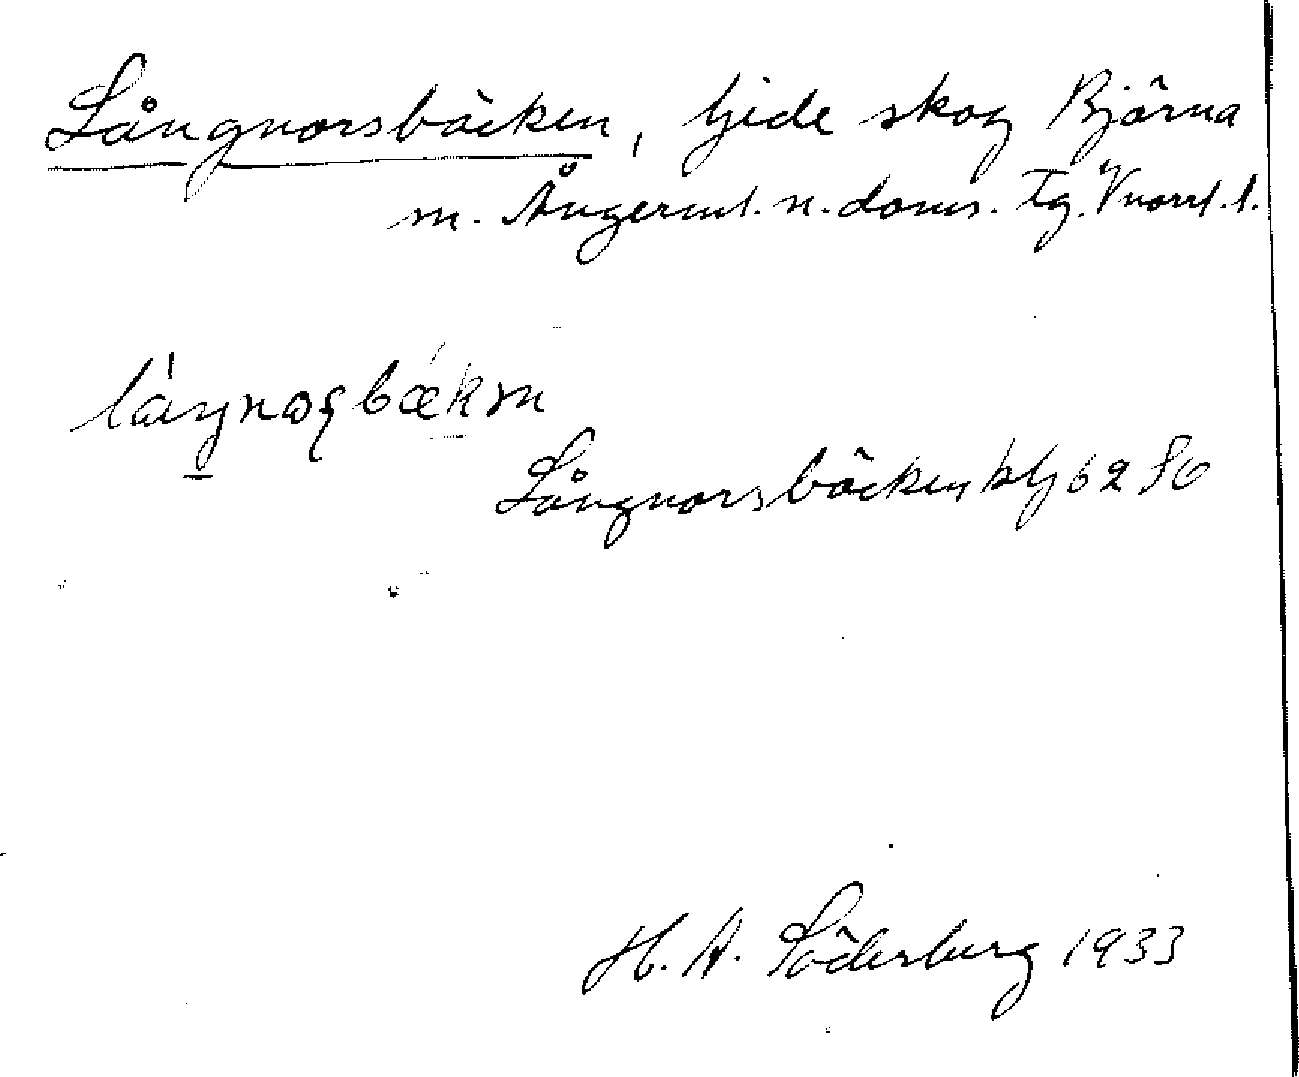 Långnorsbäcken, Gide skog Björna
m. Ångerml. n. doms. tg. Vnorrl. l.
làŋnoʂbækən
Långnorsbäcken blj 62 SO
H. A. Söderberg 1933